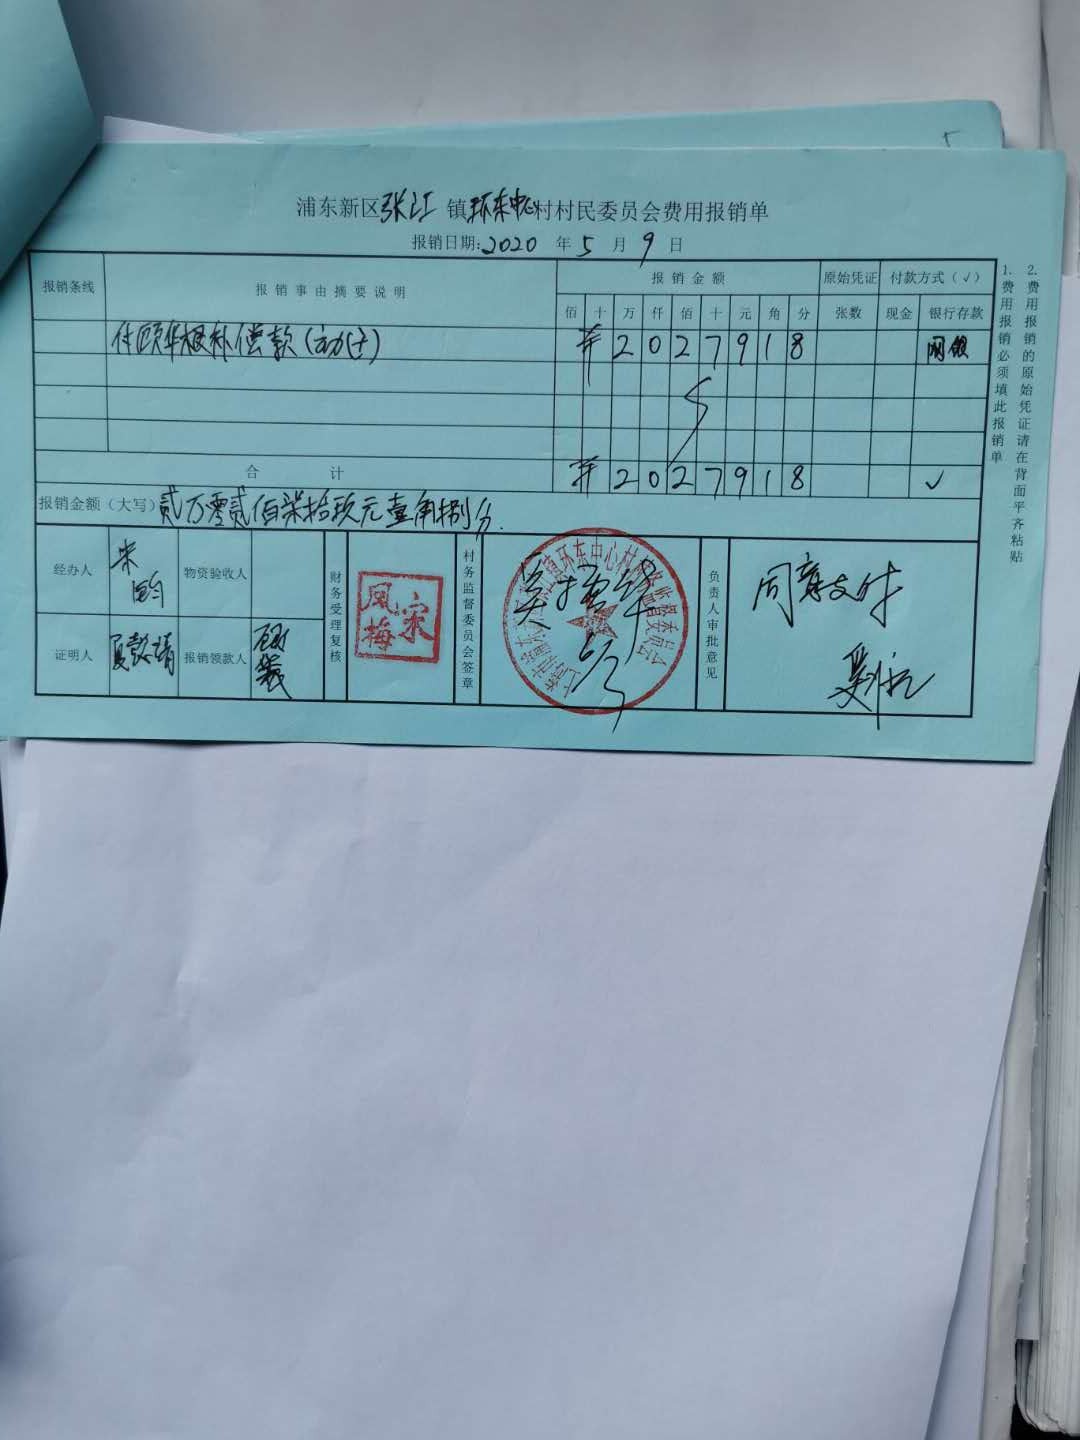 浦东新区张江镇环东中心村村民委员会费用报销单
报销日期:2020年5月9日
报销条线 报销事由摘要说明 报销金额 原始凭证 付款方式(√)
佰 十 万 仟 佰 十 元 角 分 张数 现金 银行存款
付顾华根补偿款(动迁) ¥ 2 0 2 7 9 1 8 网银
合计 ¥ 2 0 2 7 9 1 8 √
报销金额(大写)贰万零贰佰柒拾玖元壹角捌分
经办人 朱 物资验收人
证明人 报销领款人
财务受理复核
宋凤梅
村务监督委员会签章
镇环东中心村村务监督委员会
5/3
负责人审批意见
同意支付
1.费用报销必须填此报销单
2.费用报销的原始凭证请在背面平齐粘贴